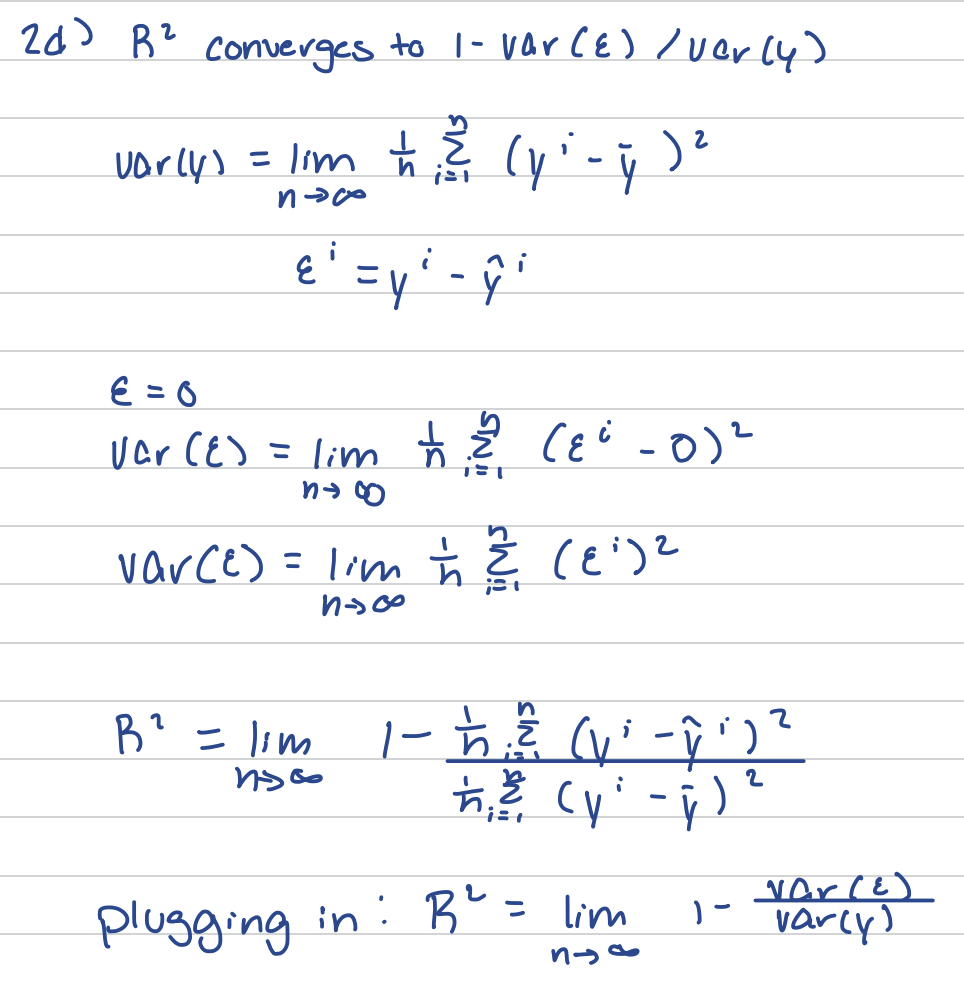 2d) R² converges to 1 - var(ε) / var(y)
var(y) = lim n→∞ 1/n Σ i=1 n (yⁱ - ȳ)²
εⁱ = yⁱ - ŷⁱ
ε = 0
var(ε) = lim n→∞ 1/n Σ i=1 n (εⁱ - 0)²
var(ε) = lim n→∞ 1/n Σ i=1 n (εⁱ)²
R² = lim n→∞ 1 - (1/n Σ i=1 n (yⁱ - ŷⁱ)²) / (1/n Σ i=1 n (yⁱ - ȳ)²)
plugging in: R² = lim n→∞ 1 - var(ε) / var(y)